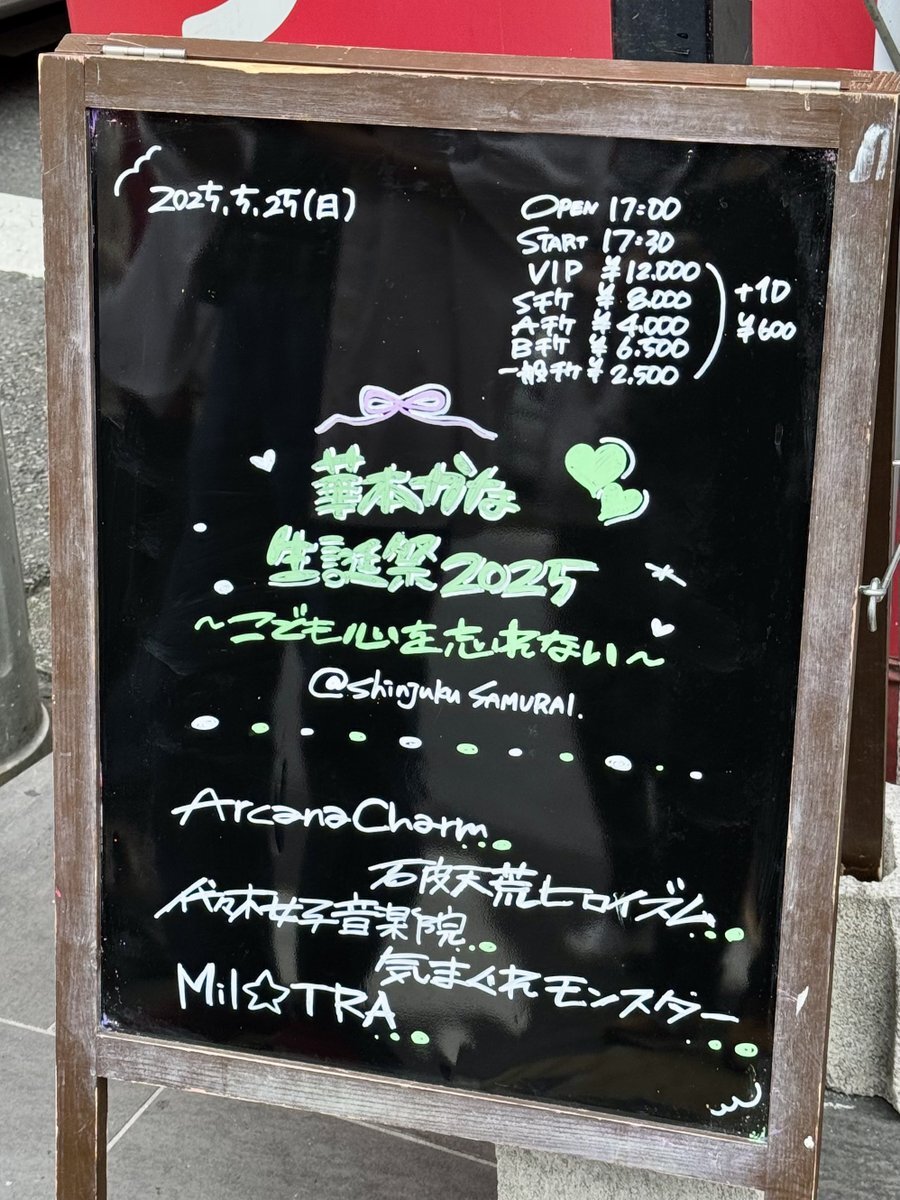 2025.5.25(日)
OPEN 17:00
START 17:30
VIP ¥12.000
Sチケ ¥ 8.000
Aチケ ¥ 4.000
Bチケ ¥ 6.500
一般チケ ¥ 2.500
+1D
¥600
華本かな
生誕祭2025
～こども心を忘れない～
@Shinjuku SAMURAI.
ArcanaCharm
破天荒ヒロイズム
代々木女子音楽院
気まぐれモンスター
Mil☆TRA